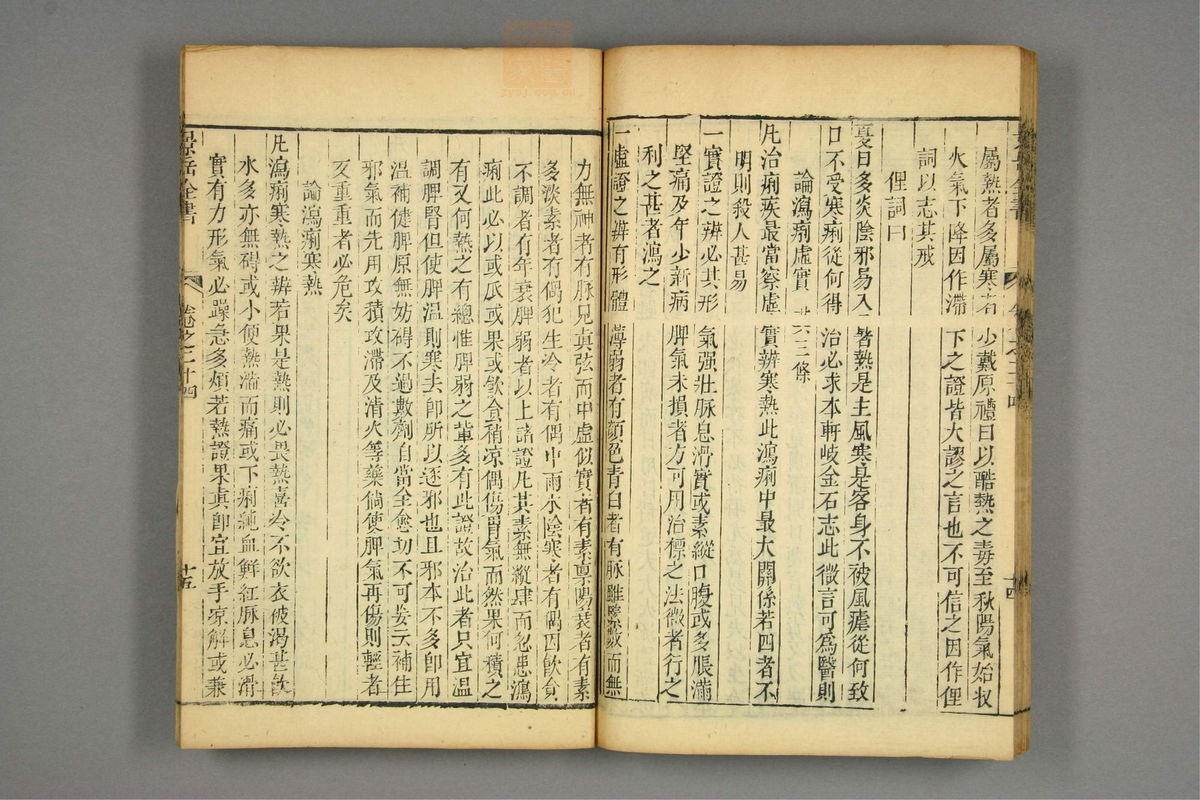 屬熱者多屬寒者少戴原禮曰以酷熱之毒至秋陽氣始收
火氣下降因作滯下之證皆大謬之言也不可信之因作俚
詞以志其戒
俚詞曰
夏日多炎陰邪易入暑熱是主風寒是客身不被風瘧從何致
口不受寒痢從何得治必求本軒岐金石志此微言可為醫則
論瀉痢虛實 共三條
凡治痢疾最當察虛實辨寒熱此瀉痢中最大關係若四者不
明則殺人甚易
一實證之辨必其形氣强壯脉息滑實或素縱口腹或多脹滿
堅痛及年少新病脾氣未損者方可用治標之法微者行之
利之甚者瀉之
一虛證之辨有形體薄弱者有顏色青白者有脉雖緊數而無
力無神者有脉見真弦而中虛似實者有素禀陽衰者有素
多淡素者有偶犯生冷者有偶中雨水陰寒者有偶因飲食
不調者有年衰脾弱者以上諸證凡其素無縱肆而忽患瀉
痢此必以或瓜或果或飲食稍凉偶傷胃氣而然果何積之
有又何熱之有總惟脾弱之軰多有此證故治此者只宜温
調脾腎但使脾温則寒去即所以逐邪也且邪本不多即用
温補健脾原無妨碍不過數劑自當全愈切不可妄云補住
邪氣而先用攻積攻滯及清火等藥倘使脾氣再傷則輕者
反重重者必危矣
論瀉痢寒熱
凡瀉痢寒熱之辨若果是熱則必畏熱喜冷不欲衣被渴甚飲
水多亦無碍或小便熱濇而痛或下痢純血鮮紅脉息必滑
實有力形氣必躁急多煩若熱證果真即宜放手凉解或兼
景岳全書
卷之二十四
十五
十四